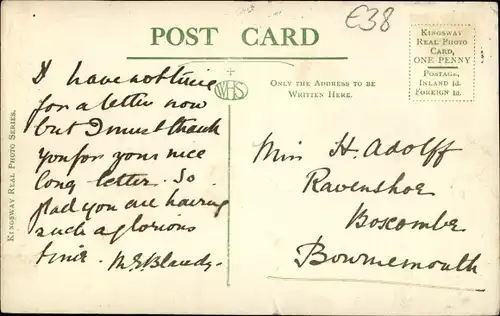 €38
POST CARD
KINGSWAY
REAL PHOTO
CARD,
ONE PENNY
POSTAGE,
INLAND ½d.
FOREIGN 1d.
WHS
ONLY THE ADDRESS TO BE
WRITTEN HERE.
KINGSWAY REAL PHOTO SERIES.
I have not time
for a letter now
but I must thank
you for your nice
long letter. So
glad you are having
such a glorious
time. M E Blandy.
Miss H. Adolff
Ravenshoe
Boscombe
Bournemouth